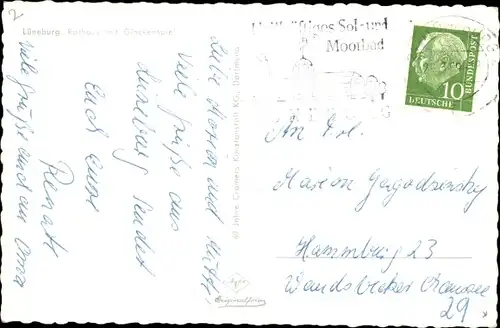 2
Lüneburg. Rathaus mit Glockenspiel
Liebe Marion und Mutti,
Viele Grüße aus
Lüneburg sendet
Euch Eure
Renate
Viele Grüße auch an Oma
60 Jahre Cramers Kunstanstalt KG., Dortmund
Agfa
Originalfoto
Heilkräftiges Sol- und
Moorbad
10
DEUTSCHE
BUNDESPOST
An Frl.
Marion Jagodzinsky
Hammburg 23
Wandsbecker Chaussee
29